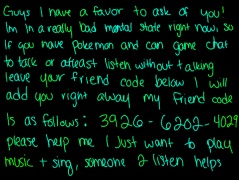 Guys I have a favor to ask of you!
Im in a really bad mental state right now, so
if you have Pokemon and can game chat
to talk or atleast listen without talking
leave your friend code below I will
add you right away my friend code
Is as follows: 3926-6202-4029
please help me I Just want to play
music + sing, someone 2 listen helps